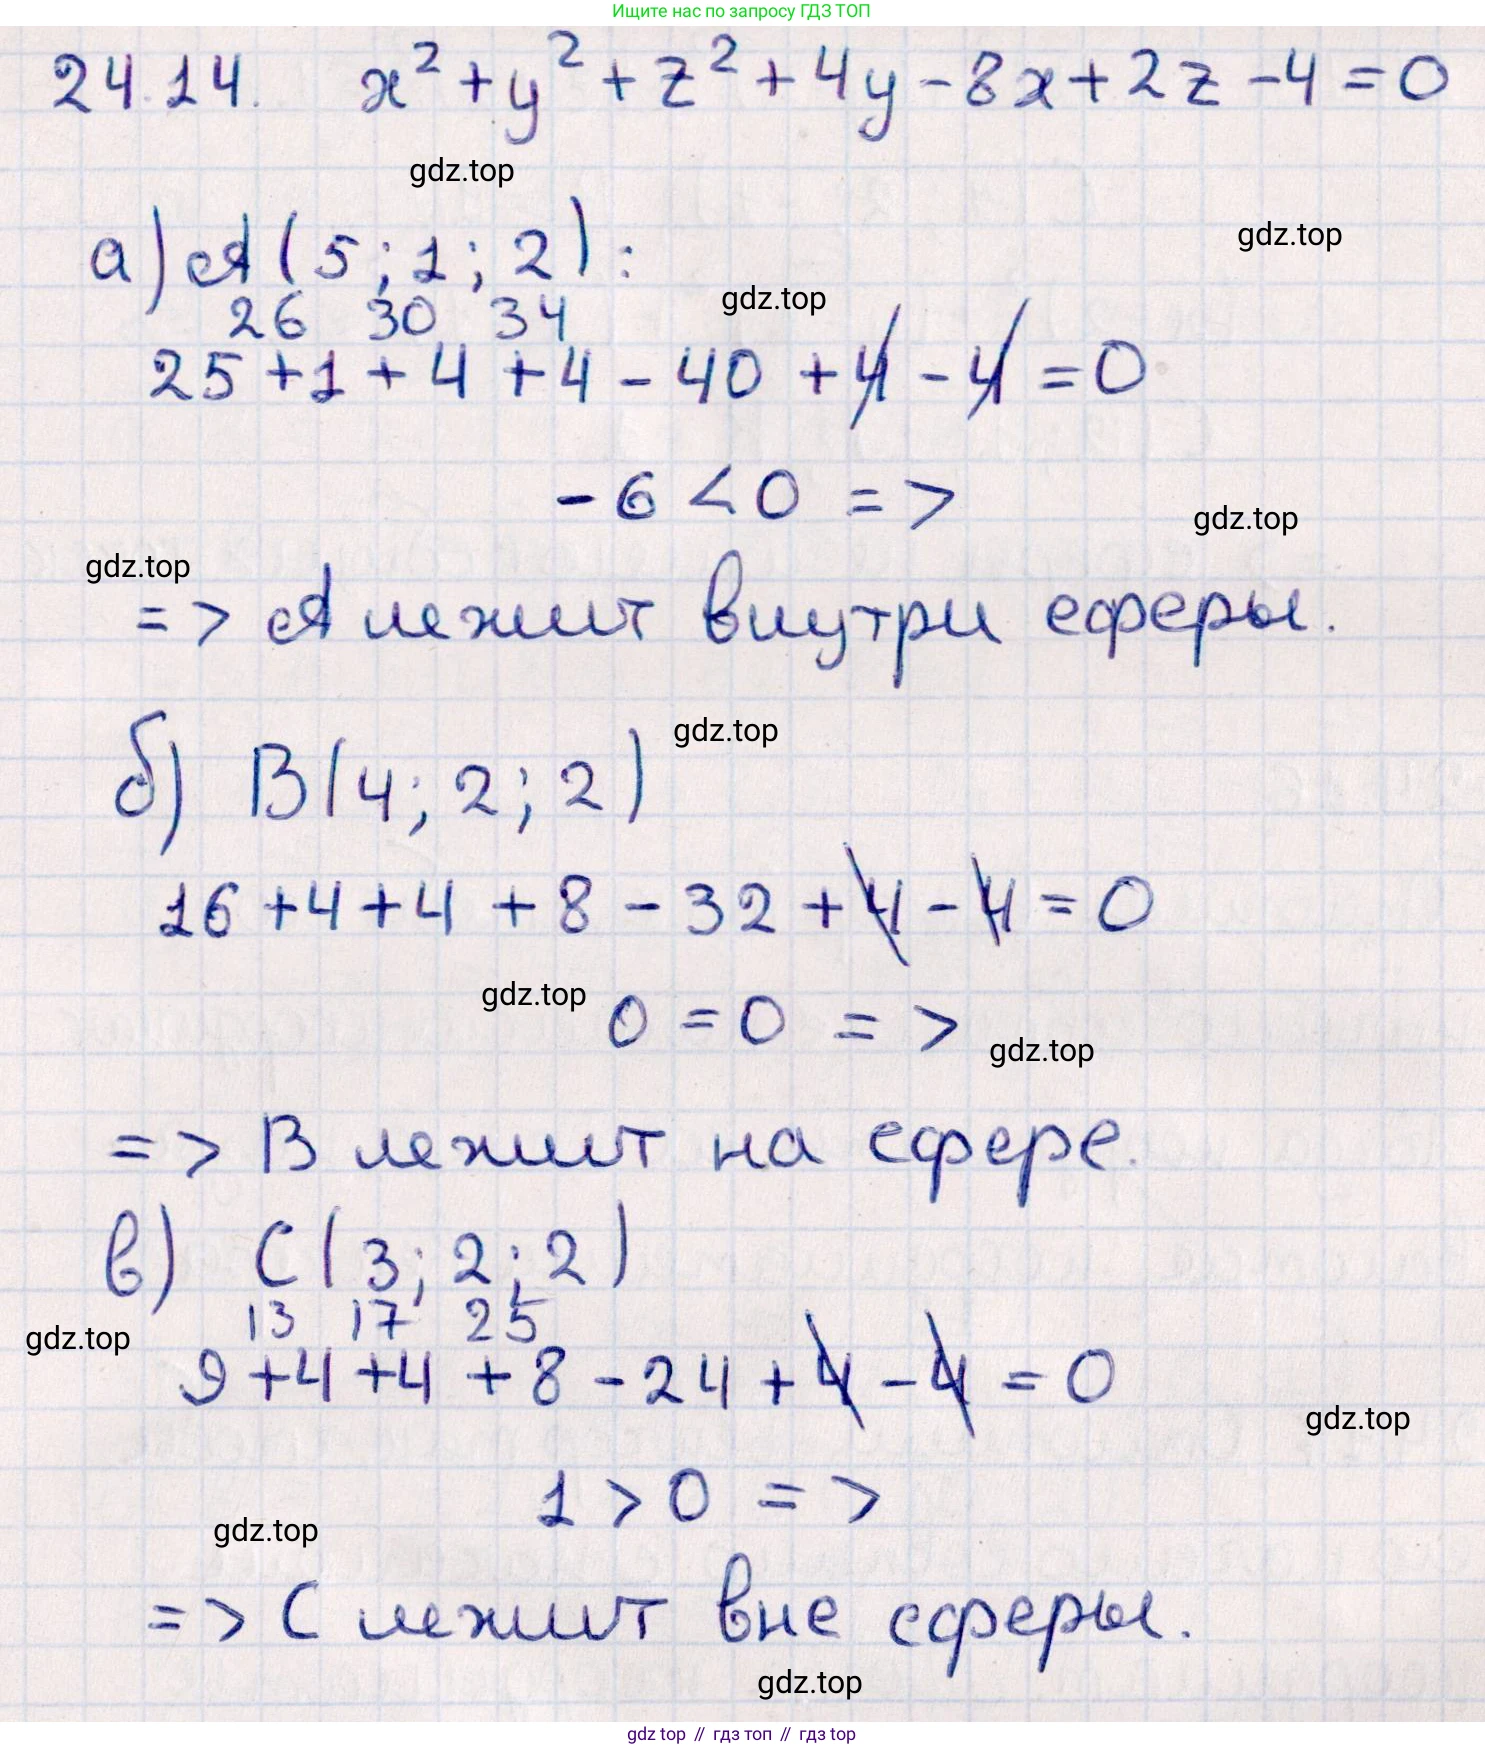 Ищите нас по запросу ГДЗ ТОП
24.14. x² + y² + z² + 4y - 8x + 2z - 4 = 0
gdz.top
gdz.top
а) A(5; 1; 2):
gdz.top
26 30 34
25 + 1 + 4 + 4 - 40 + 4 - 4 = 0
-6 < 0 =>
gdz.top
gdz.top
=> A лежит внутри сферы.
gdz.top
б) B(4; 2; 2)
16 + 4 + 4 + 8 - 32 + 4 - 4 = 0
gdz.top
0 = 0 =>
gdz.top
=> B лежит на сфере.
в) C(3; 2; 2)
13 17 25
gdz.top
9 + 4 + 4 + 8 - 24 + 4 - 4 = 0
gdz.top
1 > 0 =>
gdz.top
=> C лежит вне сферы.
gdz.top
gdz top // гдз топ // гдз top